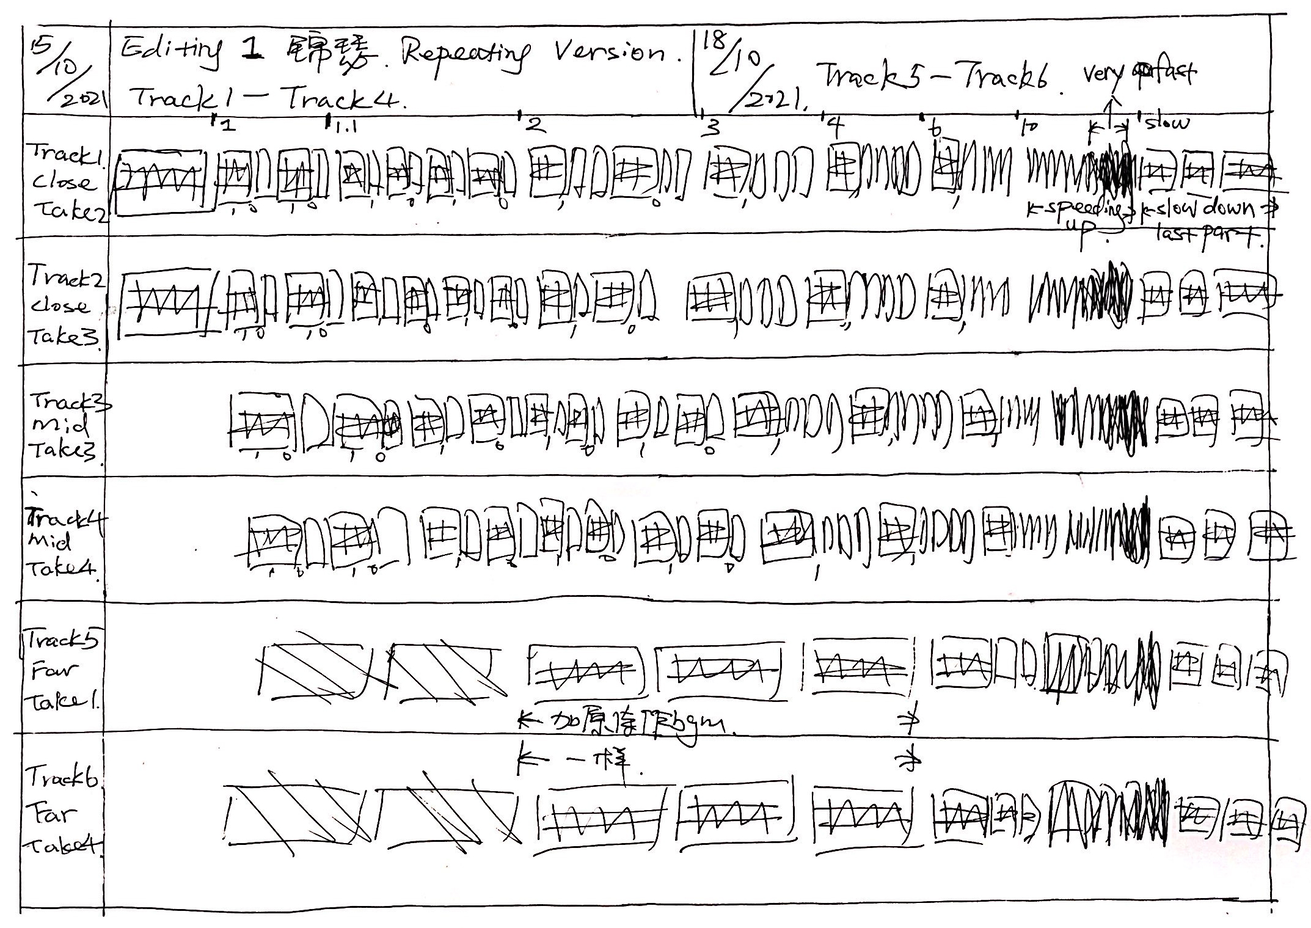 15/10/2021
Editing 1 锦瑟. Repeating Version.
Track1 – Track4.
18/10/2021.
Track5 – Track6.
very fast
1 1.1 2 3 4 6 10 slow
Track1
Close
Take2
speeding up.
slow down
last part.
Track2
Close
Take3.
Track3
Mid
Take3.
Track4
Mid
Take4.
Track5
Far
Take1.
bgm.
一样.
Track6
Far
Take4.